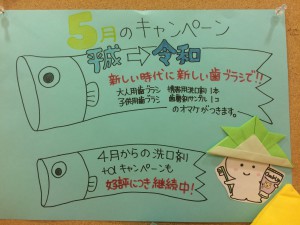 5月のキャンペーン
平成⇨令和
新しい時代に新しい歯ブラシで!!
大人用歯ブラシ 携帯用洗口剤 1本
子供用歯ブラシ 歯磨剤サンプル 1コ
のオマケがつきます。
4月からの洗口剤
+αキャンペーンも
好評につき継続中!